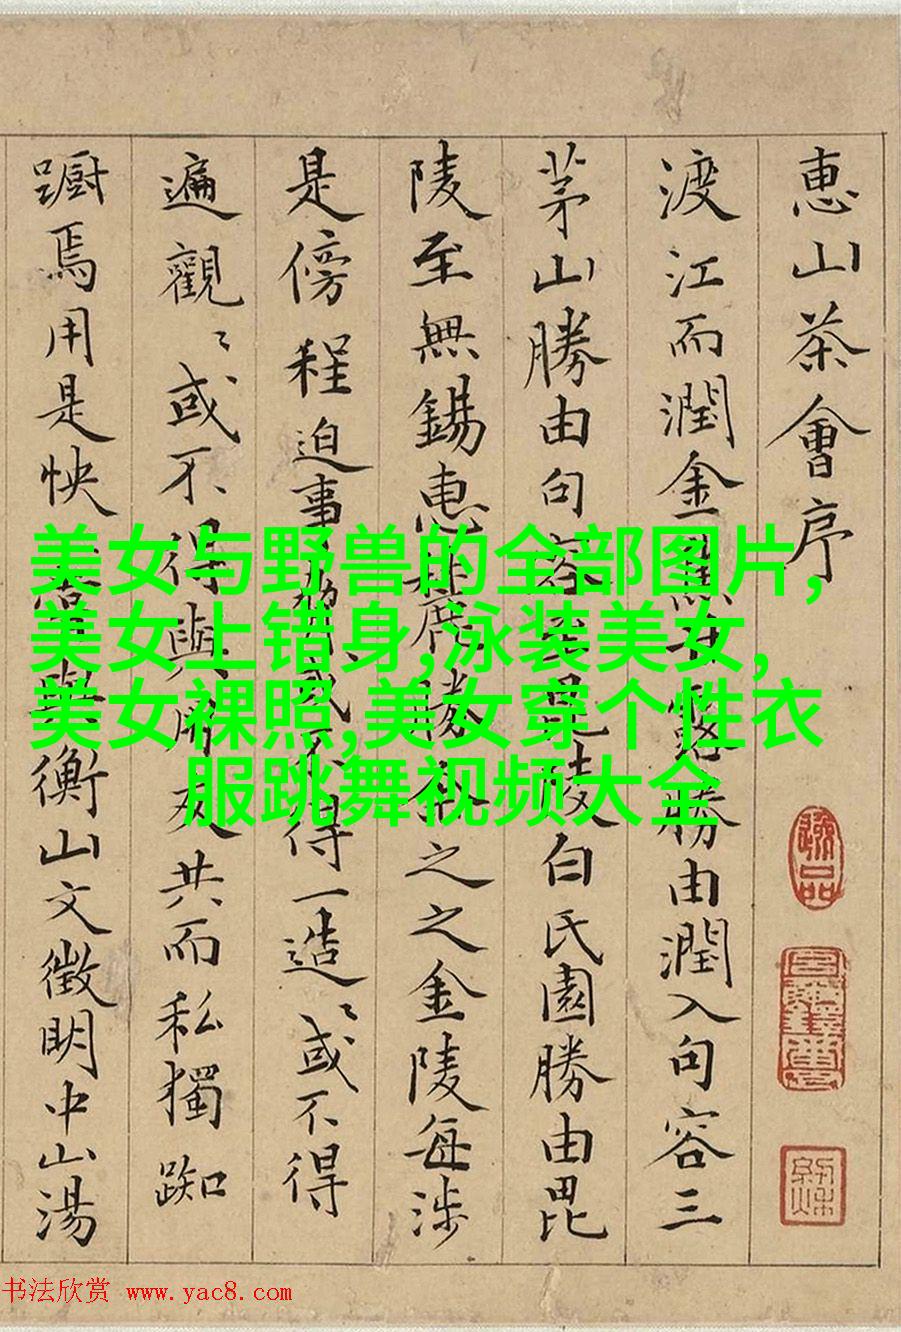 惠山茶會序
渡江而潤金焦露勝由潤入句容三
茅山勝由句容至毘陵白氏園勝由毘
陵至無錫惠麓勝余之之金陵每涉
是傍程迫事或不得一造〻或不得
遍觀〻或不得與朋友共而私獨踟
躕焉用是怏與衡山文徵明中山湯
美女与野兽的全部图片,
美女上错身,泳装美女,
美女裸照,美女穿个性衣
服跳舞视频大全
书法欣赏 www.yac8.com